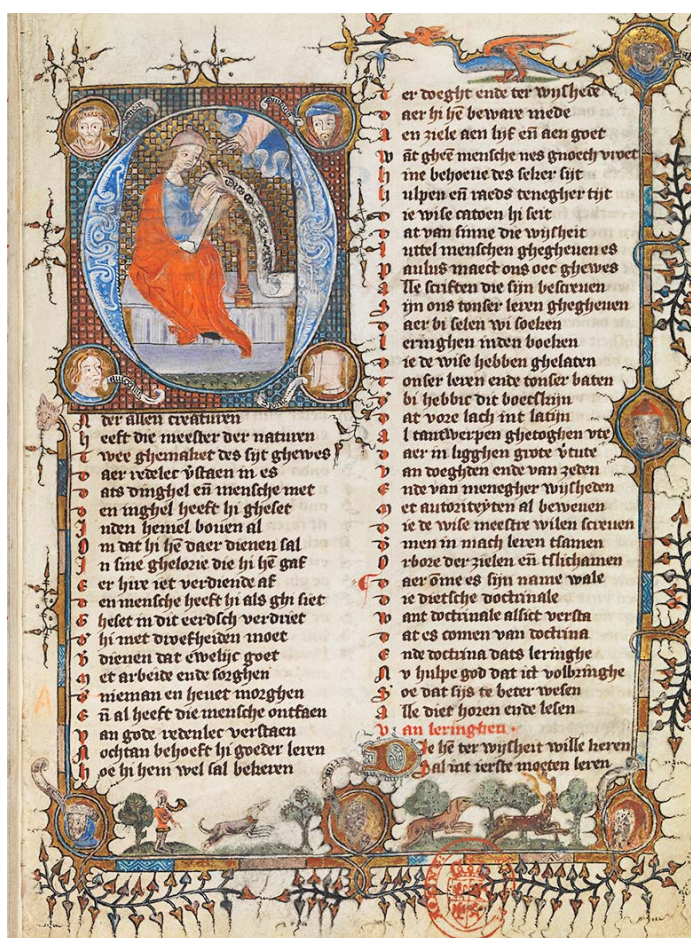 N der allen creaturen
h eeft die meester der naturen
T wee ghemaket des sijt ghewes
D aer redelec v̄staen in es
D ats dinghel eñ mensche met
D en inghel heeft hi gheset
I nden hemel bouen al
O m dat hi hē daer dienen sal
I n sine ghelorie die hi hē gaf
E er hire iet verdiende af
D en mensche heeft hi als ghi siet
G heset in dit eerdsch verdriet
D hi met droefheiden moet
V dienen dat ewelijc goet
M et arbeide ende sorghen
V nieman en heuet morghen
E ñ al heeft die mensche ontfaen
V an gode redenlec verstaen
N ochtan behoeft hi goeder leren
h oe hi hem wel sal bekeren
T er doeght ende ter wijsheit
D aer hi hē beware mede
A en ziele aen lijf eñ aen goet
W āt gheē mensche nes gnoech vroet
h ine behoeue des seker sijt
h ulpen eñ raeds tenegher tijt
D ie wise catoen hi seit
D at van sinne die wijsheit
L uttel menschen ghegheuen es
P aulus maect ons oec ghewes
A lle scriften die sijn bescreuen
S ijn ons tonser leren ghegheuen
D aer bi selen wi soeken
L eringhen inden boeken
D ie de wise hebben ghelaten
T onser leren ende tonser baten
D bi hebbic dit boecskijn
D at vore lach int latijn
T al tantwerpen ghetoghen vte
D aer in ligghen grote v̄tute
V an doeghden ende van zeden
E nde van menegher wijsheden
M et autoriteyten al beweuen
D ie de wise meestre wilen screuen
D men in mach leren tsamen
O rbore der zielen eñ tslichamen
D aer ōme es sijn name wale
D ie dietsche doctrinale
W ant doctrinale alsict versta
D at es comen van doctrina
E nde doctrina dats leringhe
N v hulpe god dat ict volbringhe
S oe dat sijs te beter wesen
A lle diet horen ende lesen
V an leringhen
D ie hē ter wijsheit wille keren
S al int ierste moeten leren